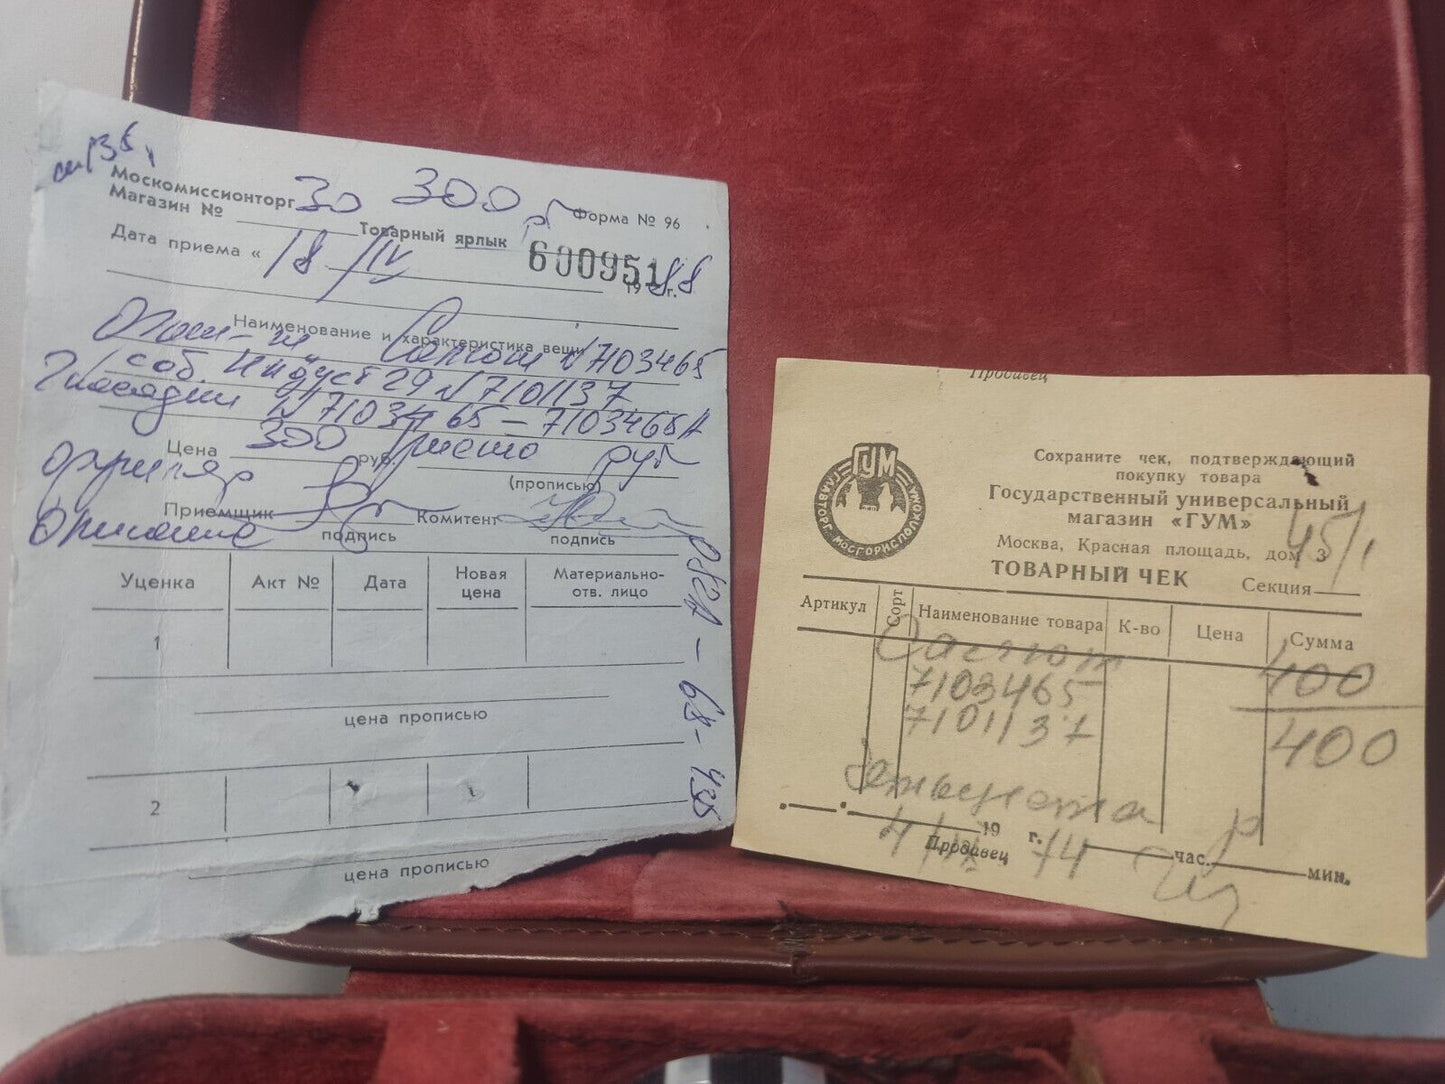 Москомиссионторг 30 300 р
Форма № 96
Магазин №
Товарный ярлык
600951
Дата приема « 18/IV 1988 г.
Наименование и характеристика вещи
Салют N 7103465
соб. Индуст 29 N 7101137
N 7103465 - 7103465А
Цена 300 руб. Триста руб
(прописью)
Приемщик
Комитент
подпись
подпись
Уценка
Акт №
Дата
Новая цена
Материально-отв. лицо
1
цена прописью
2
цена прописью
Продавец
ГУМ
ГЛАВТОРГ МОСГОРИСПОЛКОМА
Сохраните чек, подтверждающий
покупку товара
Государственный универсальный
магазин «ГУМ»
Москва, Красная площадь, дом 3
45/1
ТОВАРНЫЙ ЧЕК
Секция
Артикул
Сорт
Наименование товара
К-во
Цена
Сумма
Салют 400
7103465
7101137 400
Четыреста р
19 г. час. мин.
74
Продавец